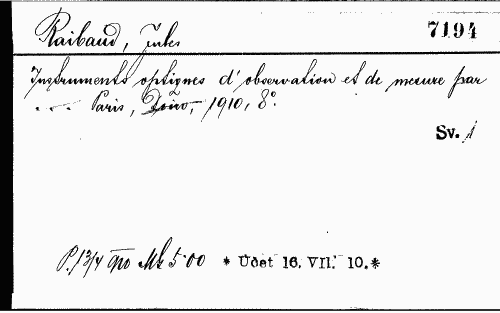 Raibaud, Jules 7194
Instruments optiques d'observation et de mesure par
. . . . Paris, Doin, 1910, 8°.
Sv. 1
P. 13/4 910 Mk 5·00 * Udet 16. VII. 10.*